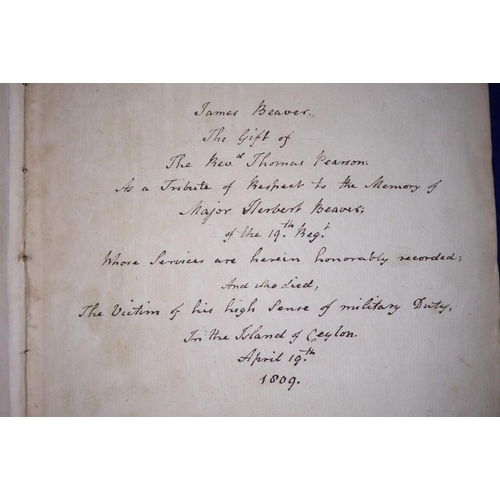 James Beaver.
The Gift of
The Revd Thomas Pearson.
As a Tribute of Respect to the Memory of
Major Herbert Beaver;
of the 19th Regt
Whose Services are herein honorably recorded;
And who died,
The Victim of his high Sense of military Duty,
In the Island of Ceylon.
April 19th
1809.